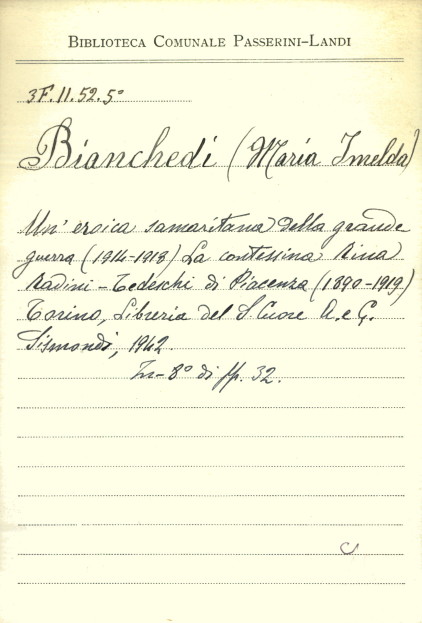 BIBLIOTECA COMUNALE PASSERINI-LANDI
3F.II.52.5°
Bianchedi (Maria Imelda)
Un' eroica samaritana della grande
guerra (1914-1918) La contessina Rina
Radini-Tedeschi di Piacenza (1890-1919)
Torino, Libreria del S. Cuore A. e G.
Sismondi, 1942
In-8° di pp. 32.